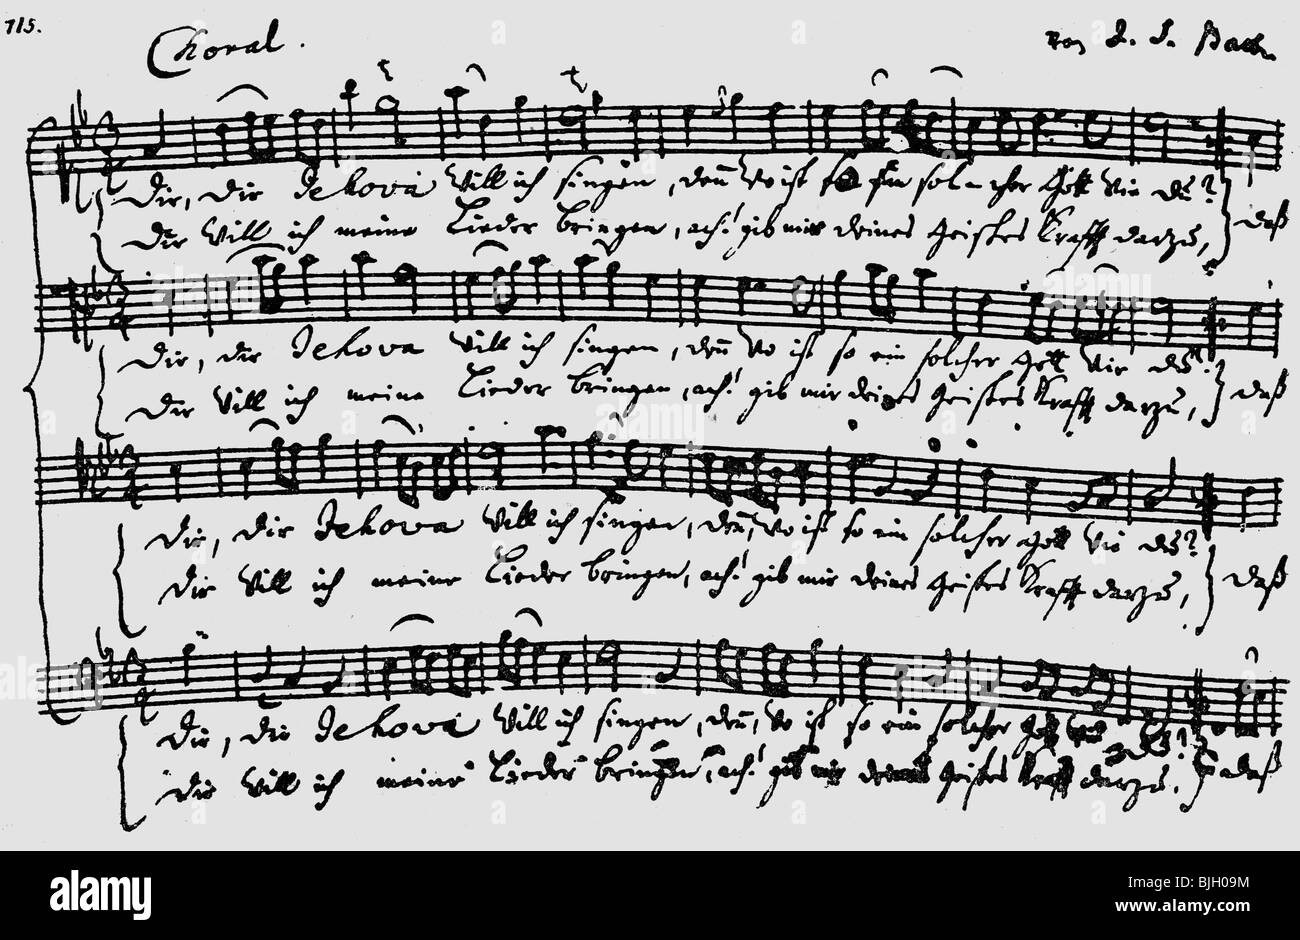 115.
Choral.
von J. S. Bach.
Dir, dir Jehova will ich singen, denn wo ist so ein solcher Gott wie du?
Dir will ich meine Lieder bringen, ach! gib mir deines Geistes Krafft darzu,
daß
Dir, dir Jehova will ich singen, denn wo ist so ein solcher Gott wie du?
Dir will ich meine Lieder bringen, ach! gib mir deines Geistes Krafft darzu,
daß
Dir, dir Jehova will ich singen, denn, wo ist so ein solcher Gott wie du?
Dir will ich meine Lieder bringen, ach! gib mir deines Geistes Krafft darzu,
daß
Dir, dir Jehova will ich singen, denn, wo ist so ein solcher Gott wie du?
Dir will ich meine Lieder bringen, ach! gib mir deines Geistes Krafft darzu,
daß
alamy
Image ID: BJH09M
www.alamy.com